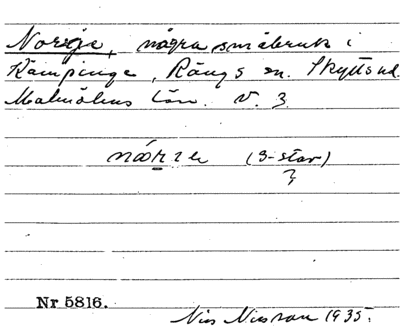 Norge, några småbruk i
Kämpinge, Rängs sn. Skytts hd.
Malmöhus län. V. 3
(3-stav)
Nr 5816.
Nils Nilsson 1935.